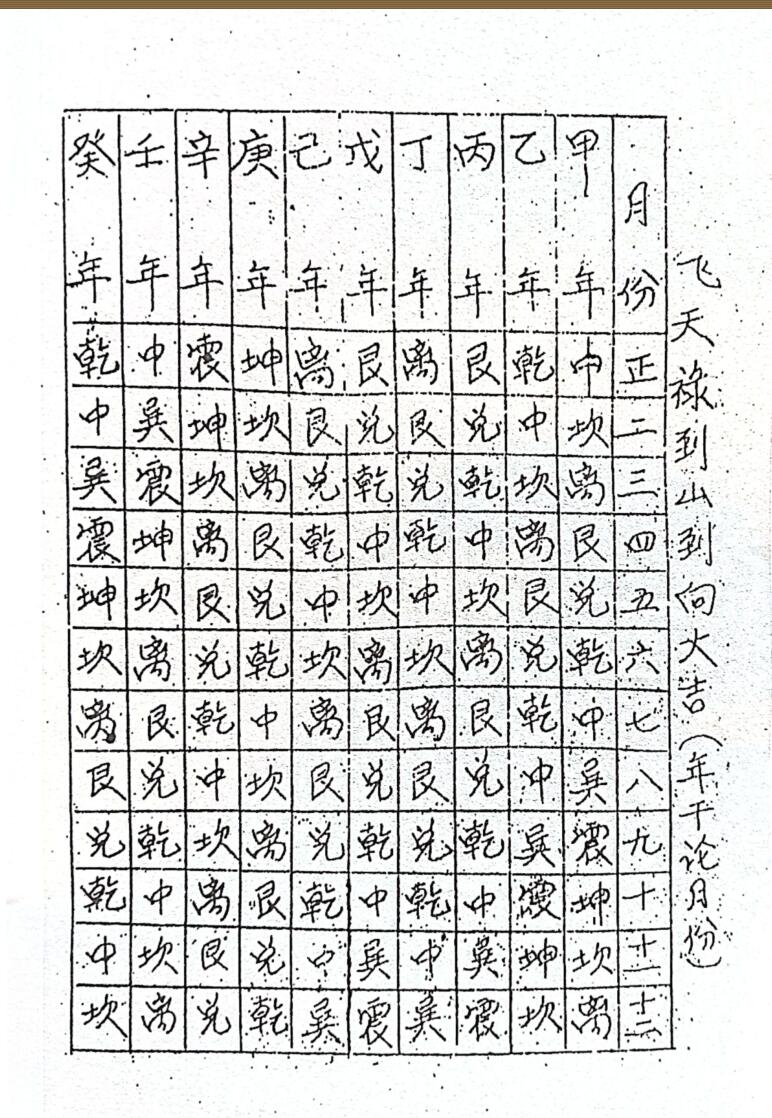 飞天禄到山到向大吉（年干论月份）
月份 正 二 三 四 五 六 七 八 九 十 十一 十二
甲年 中 坎 离 艮 兑 乾 中 巽 震 坤 坎 离
乙年 乾 中 坎 离 艮 兑 乾 中 巽 震 坤 坎
丙年 艮 兑 乾 中 坎 离 艮 兑 乾 中 巽 震
丁年 离 艮 兑 乾 中 坎 离 艮 兑 乾 中 巽
戊年 艮 兑 乾 中 坎 离 艮 兑 乾 中 巽 震
己年 离 艮 兑 乾 中 坎 离 艮 兑 乾 中 巽
庚年 坤 坎 离 艮 兑 乾 中 坎 离 艮 兑 乾
辛年 震 坤 坎 离 艮 兑 乾 中 坎 离 艮 兑
壬年 中 巽 震 坤 坎 离 艮 兑 乾 中 坎 离
癸年 乾 中 巽 震 坤 坎 离 艮 兑 乾 中 坎